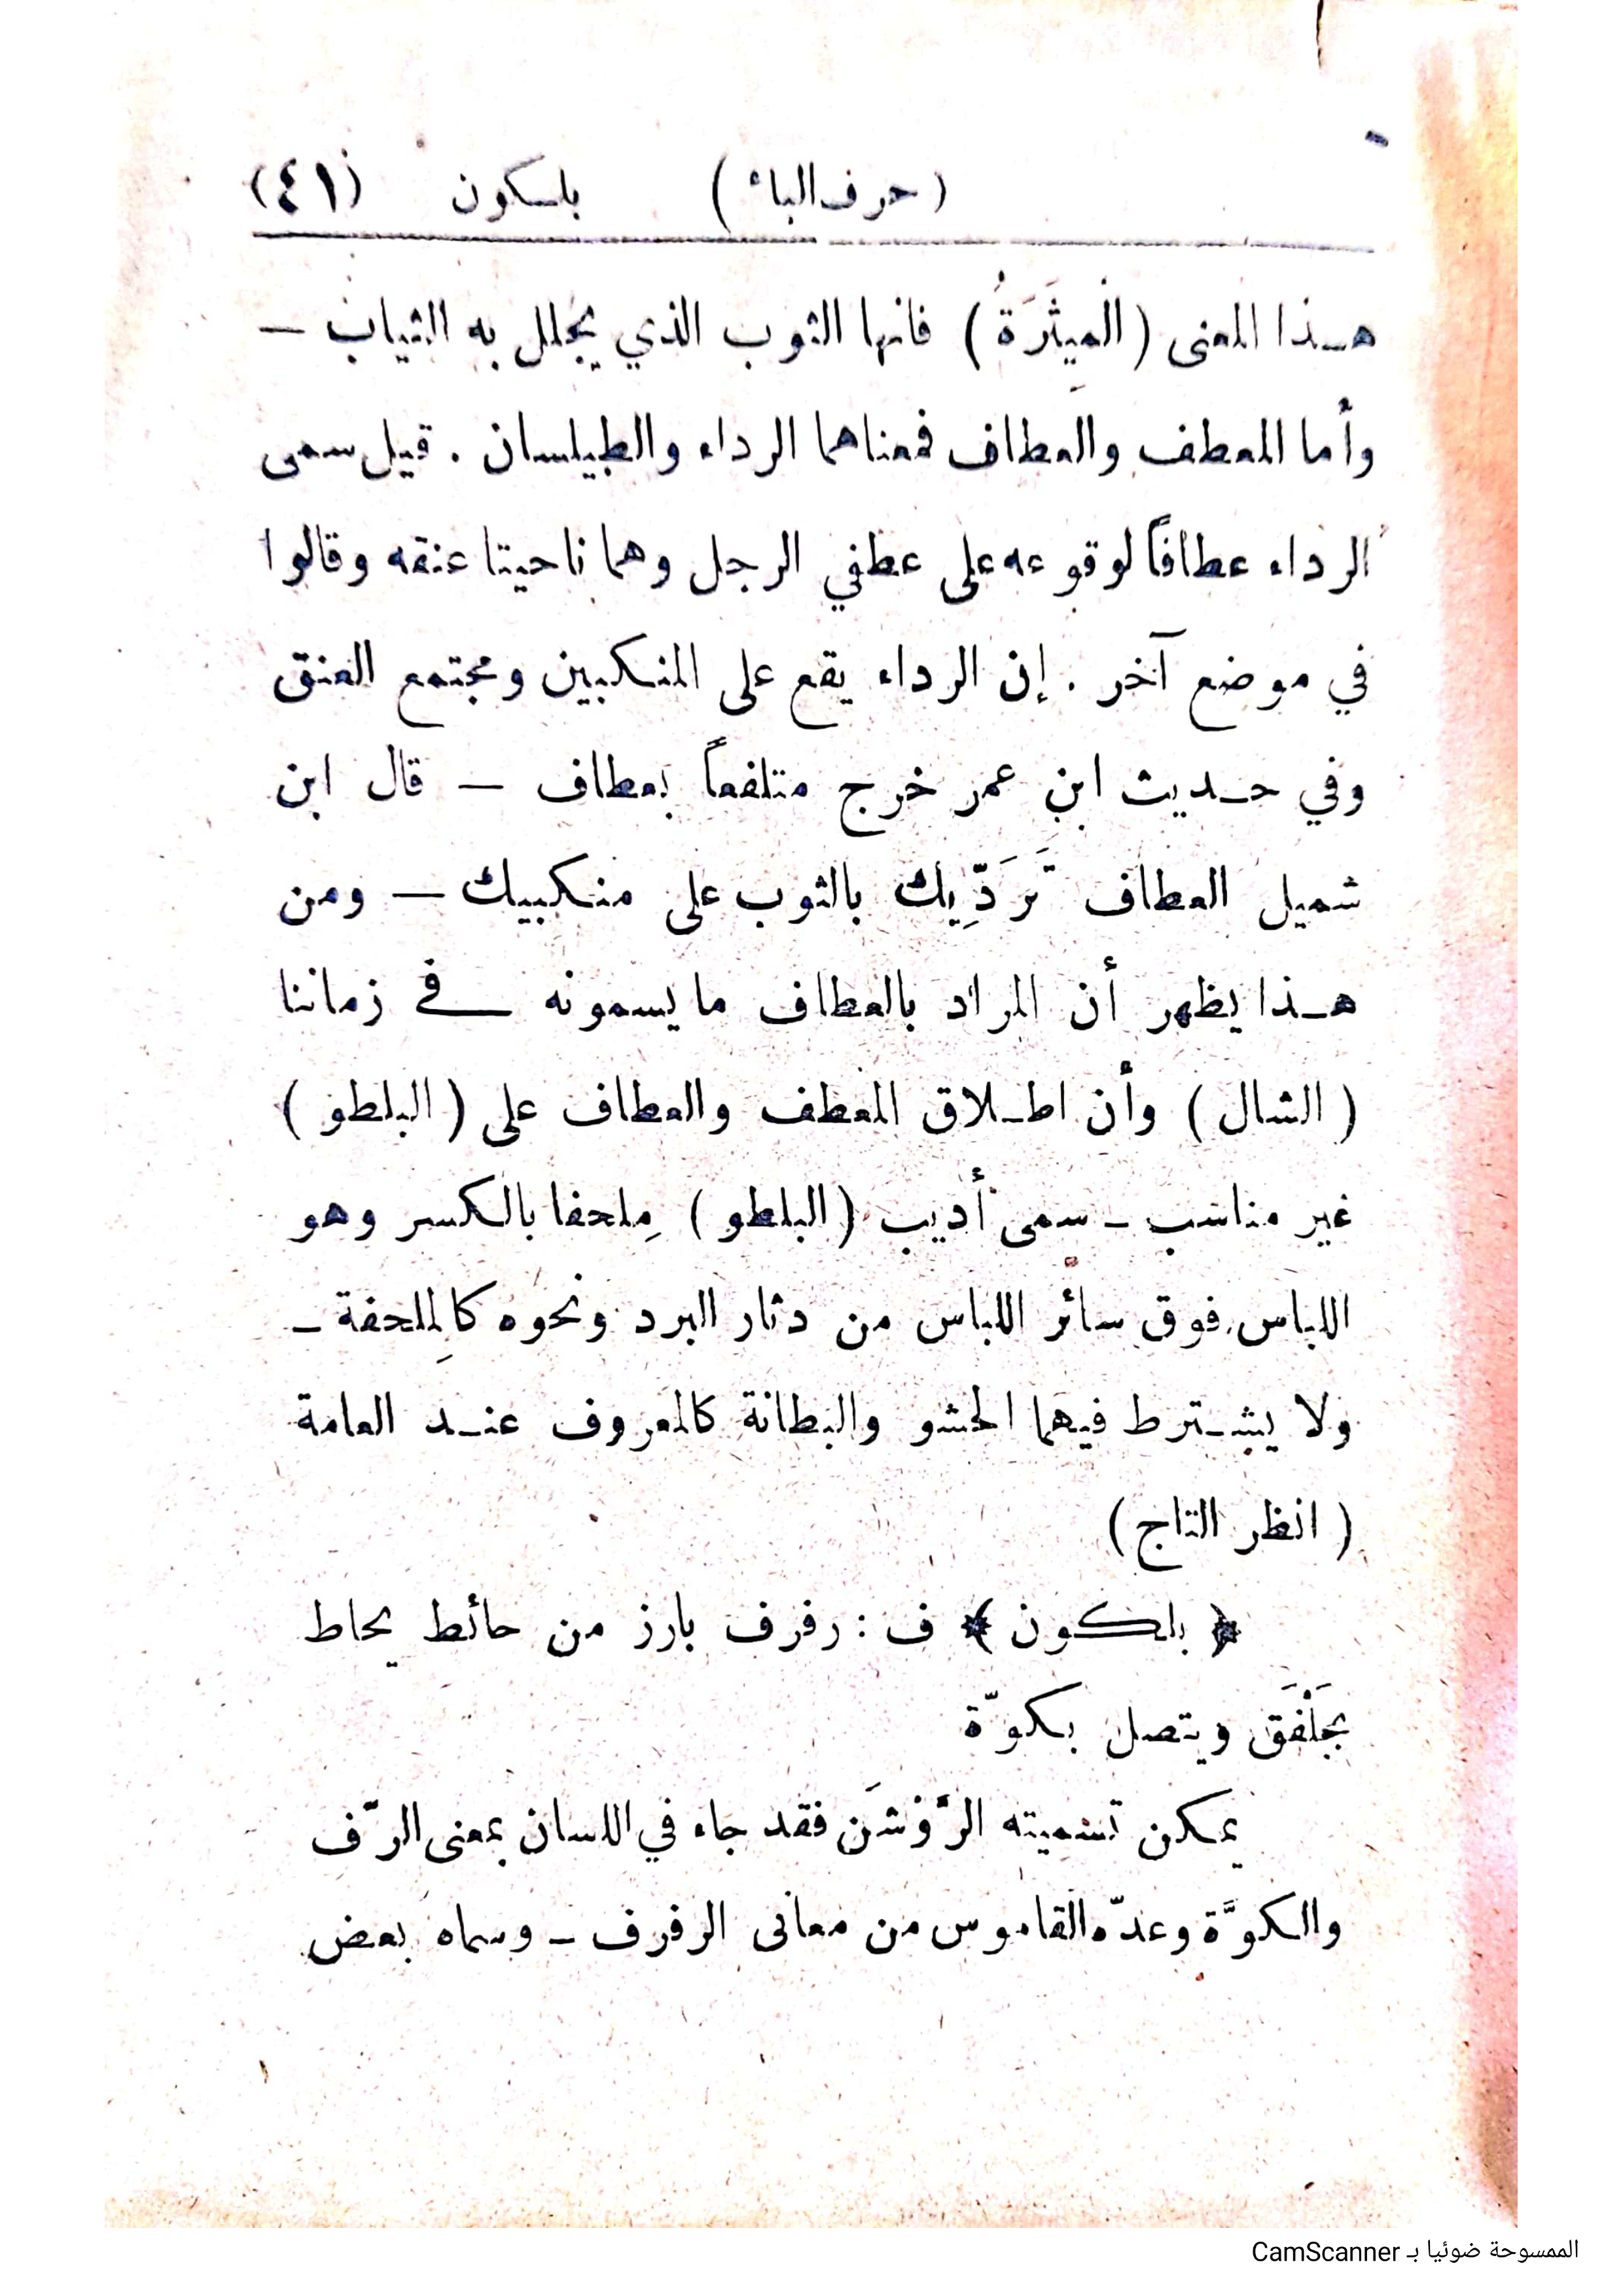 (حرف الباء) بلسكون (٤١)
هـذا المعنى (الْمِيثَرَةُ) فانها الثوب الذي يجلل به الثياب –
وأما المعطف والعطاف فمعناهما الرداء والطيلسان . قيل سمى
الرداء عطافاً لوقوعه على عطفي الرجل وهما ناحيتا عنقه وقالوا
في موضع آخر . إن الرداء يقع على المنكبين ومجتمع العنق
وفي حـديث ابن عمر خرج متلفعاً بعطاف – قال ابن
شميل العطاف تَرَدِّيك بالثوب على منكبيك – ومن
هـذا يظهر أن المراد بالعطاف ما يسمونه في زماننا
(الشال) وأن اطـلاق المعطف والعطاف على (البلطو)
غير مناسب – سمى أديب (البلطو) مِلحفا بالكسر وهو
اللباس فوق سائر اللباس من دثار البرد ونحوه كالمِلحفة –
ولا يشـترط فيهما الحشو والبطانة كالمعروف عنـد العامة
(انظر التاج)
﴿ بلكون ﴾ ف : رفرف بارز من حائط يحاط
بجَلْفَق ويتصل بكوّة
يمكن تسميته الرَّوْشَن فقد جاء في اللسان بمعنى الرّف
والكوَّة وعدّه القاموس من معانى الرفرف – وسماه بعض
الممسوحة ضوئيا بـ CamScanner